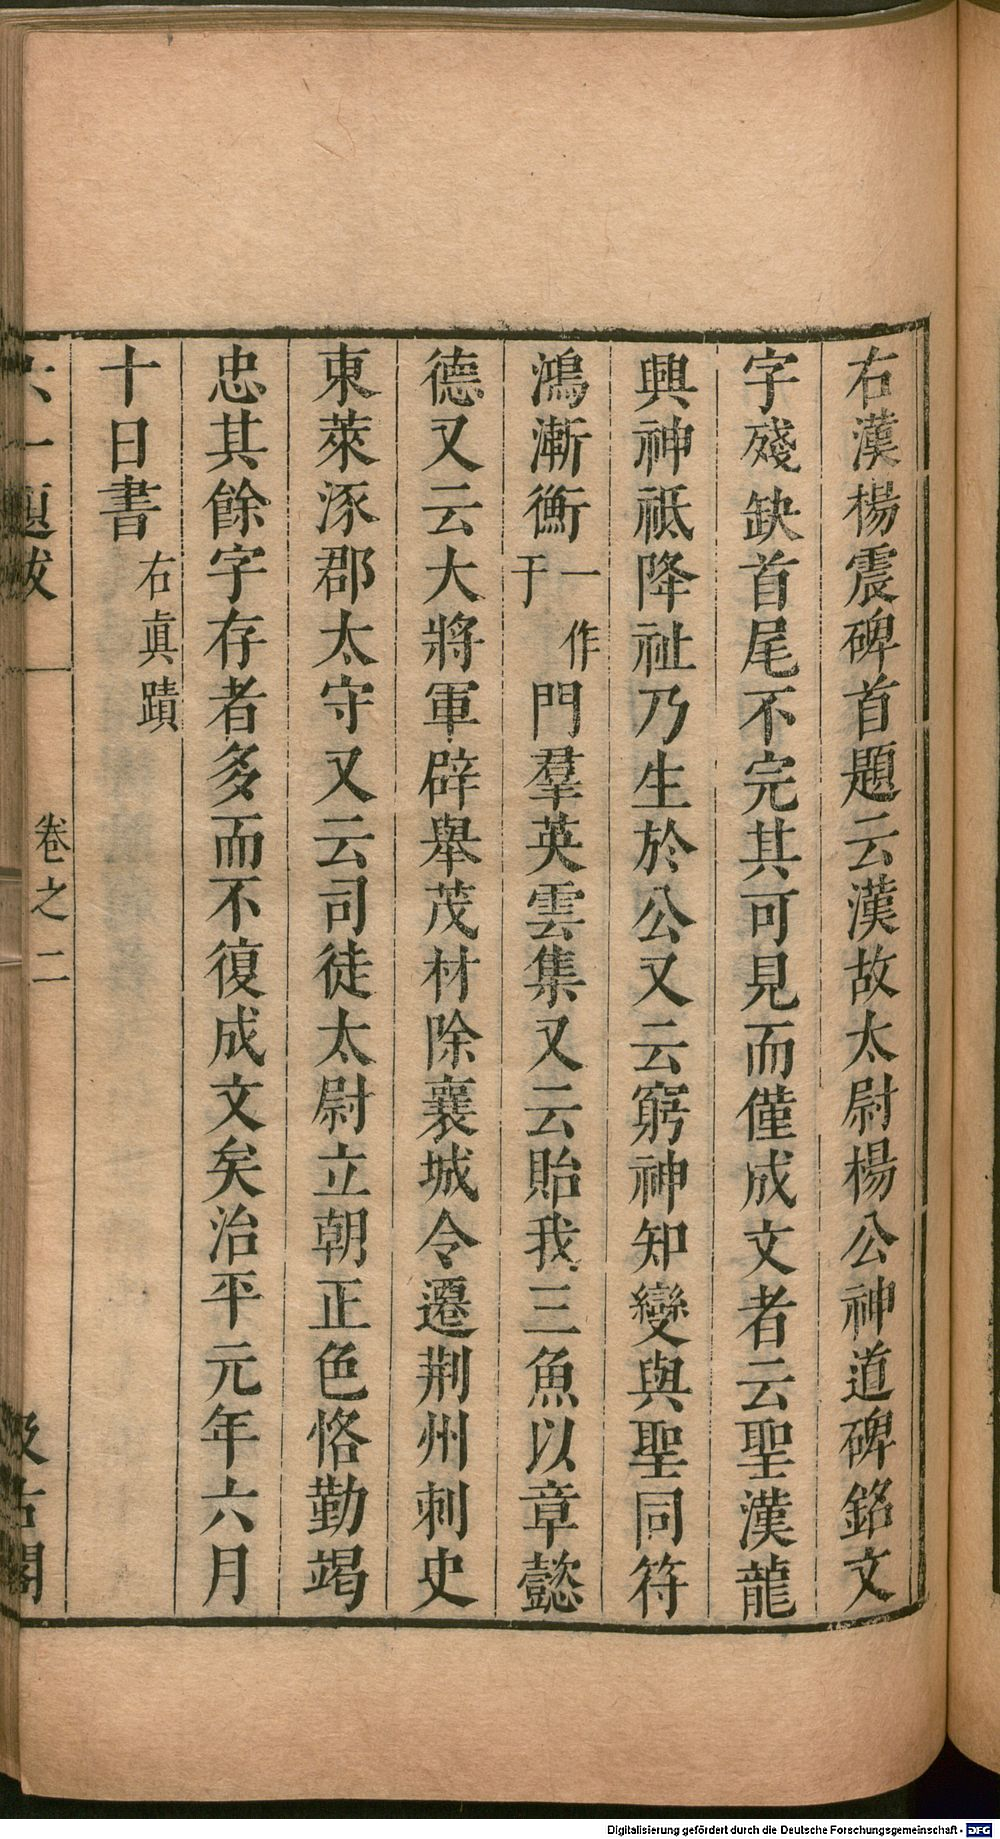 右漢楊震碑首題云漢故太尉楊公神道碑銘文
字殘缺首尾不完其可見而僅成文者云聖漢龍
興神祗降祉乃生於公又云窮神知變與聖同符
鴻漸衡一作于門羣英雲集又云貽我三魚以章懿
德又云大將軍辟舉茂材除襄城令遷荆州刺史
東萊涿郡太守又云司徒太尉立朝正色恪勤竭
忠其餘字存者多而不復成文矣治平元年六月
十日書右眞蹟
六一題跋 卷之二 汲古閣
Digitalisierung gefördert durch die Deutsche Forschungsgemeinschaft - DFG